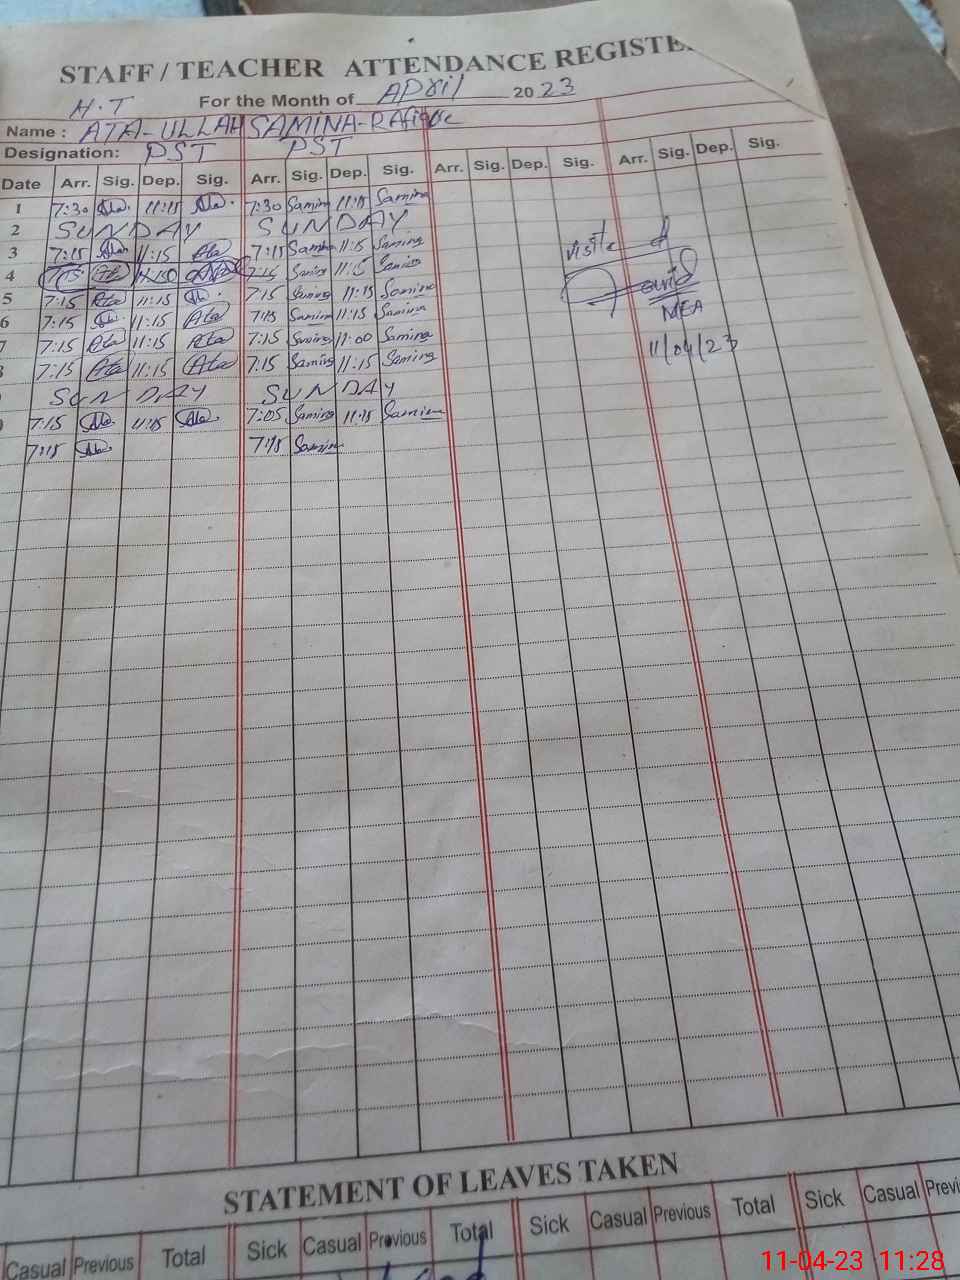 STAFF / TEACHER ATTENDANCE REGISTE
H.T For the Month of April 2023
Name : ATA-ULLAH SAMINA-RAfique
Designation: PST PST
Date Arr. Sig. Dep. Sig. Arr. Sig. Dep. Sig. Arr. Sig. Dep. Sig. Arr. Sig. Dep. Sig.
1 7:30 Ata 11:15 Ata 7:30 Samina 11:15 Samina
2 SUNDAY SUNDAY
3 7:15 Ata 11:15 Ata 7:15 Samina 11:15 Samina
4 Ata 7:15 Samina 11:15 Samina
5 7:15 Ata 11:15 Ata 7:15 Samina 11:15 Samina
6 7:15 Ata 11:15 Ata 7:15 Samina 11:15 Samina
7:15 Ata 11:15 Ata 7:15 Samina 11:00 Samina
7:15 Ata 11:15 Ata 7:15 Samina 11:15 Samina
SUNDAY SUNDAY
7:15 Ata 11:15 Ata 7:05 Samina 11:15 Samina
7:15 Ata 7:15 Samina
MEA
11/04/23
STATEMENT OF LEAVES TAKEN
Casual Previous Total Sick Casual Previous Total Sick Casual Previous Total Sick Casual Previ
11-04-23 11:28